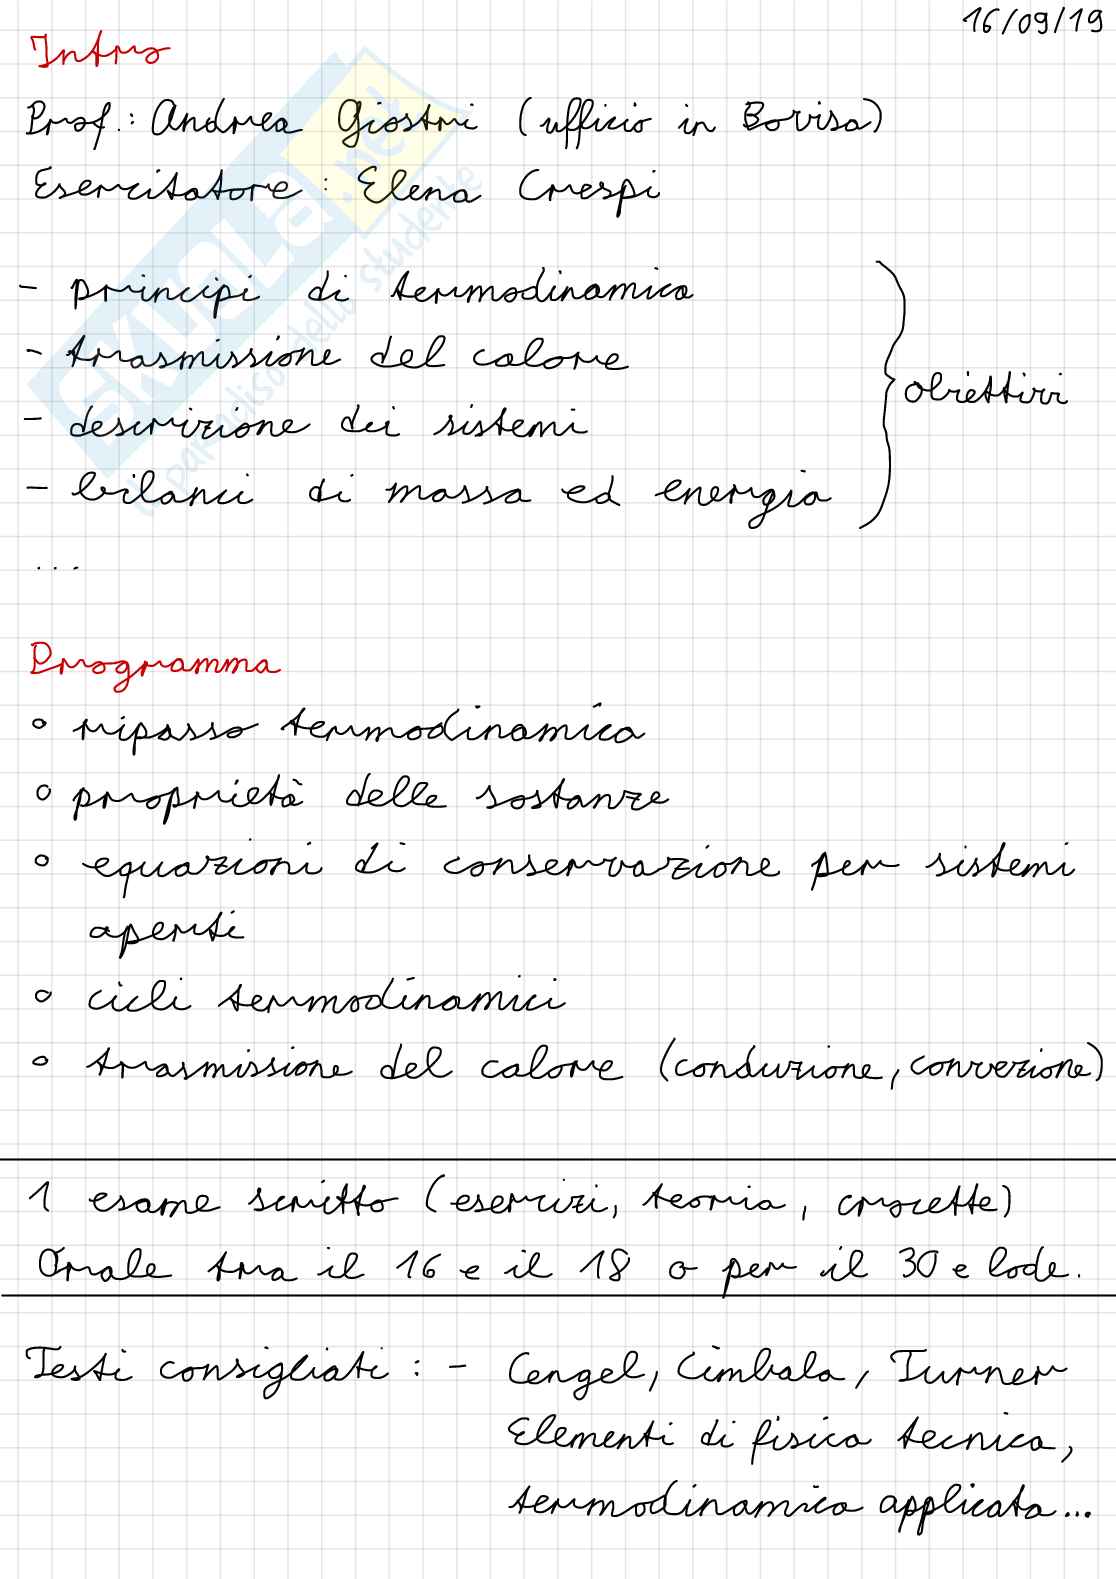 16/09/19
Intro
Prof.: Andrea Giostri (ufficio in Bovisa)
Esercitatore: Elena Crespi
- principi di termodinamica
- trasmissione del calore
- descrizione dei sistemi
- bilanci di massa ed energia
obiettivi
...
Programma
° ripasso termodinamica
° proprietà delle sostanze
° equazioni di conservazione per sistemi
aperti
° cicli termodinamici
° trasmissione del calore (conduzione, convezione)
1 esame scritto (esercizi, teoria, crocette)
Orale tra il 16 e il 18 o per il 30 e lode.
Testi consigliati: - Cengel, Cimbala, Turner
Elementi di fisica tecnica,
termodinamica applicata...
SKUOLA.net
il paradiso dello studente